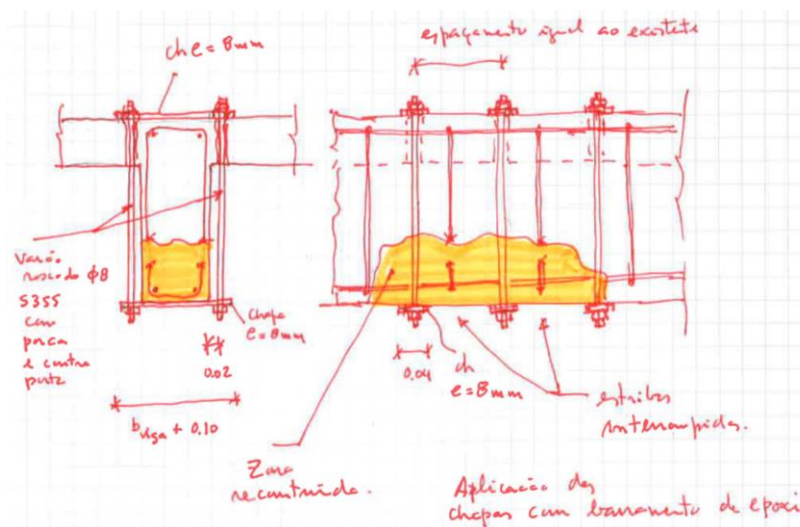 ch e = 8mm
espaçamento igual ao existete
Varão
roscado φ8
S355
com
porca
e contra
porca
chapa
e = 8mm
0.02
b viga + 0.10
0.04
ch
e = 8mm
estribos
interrompidos.
Zona
reconstruída.
Aplicação das
chapas com barramento de epoxi